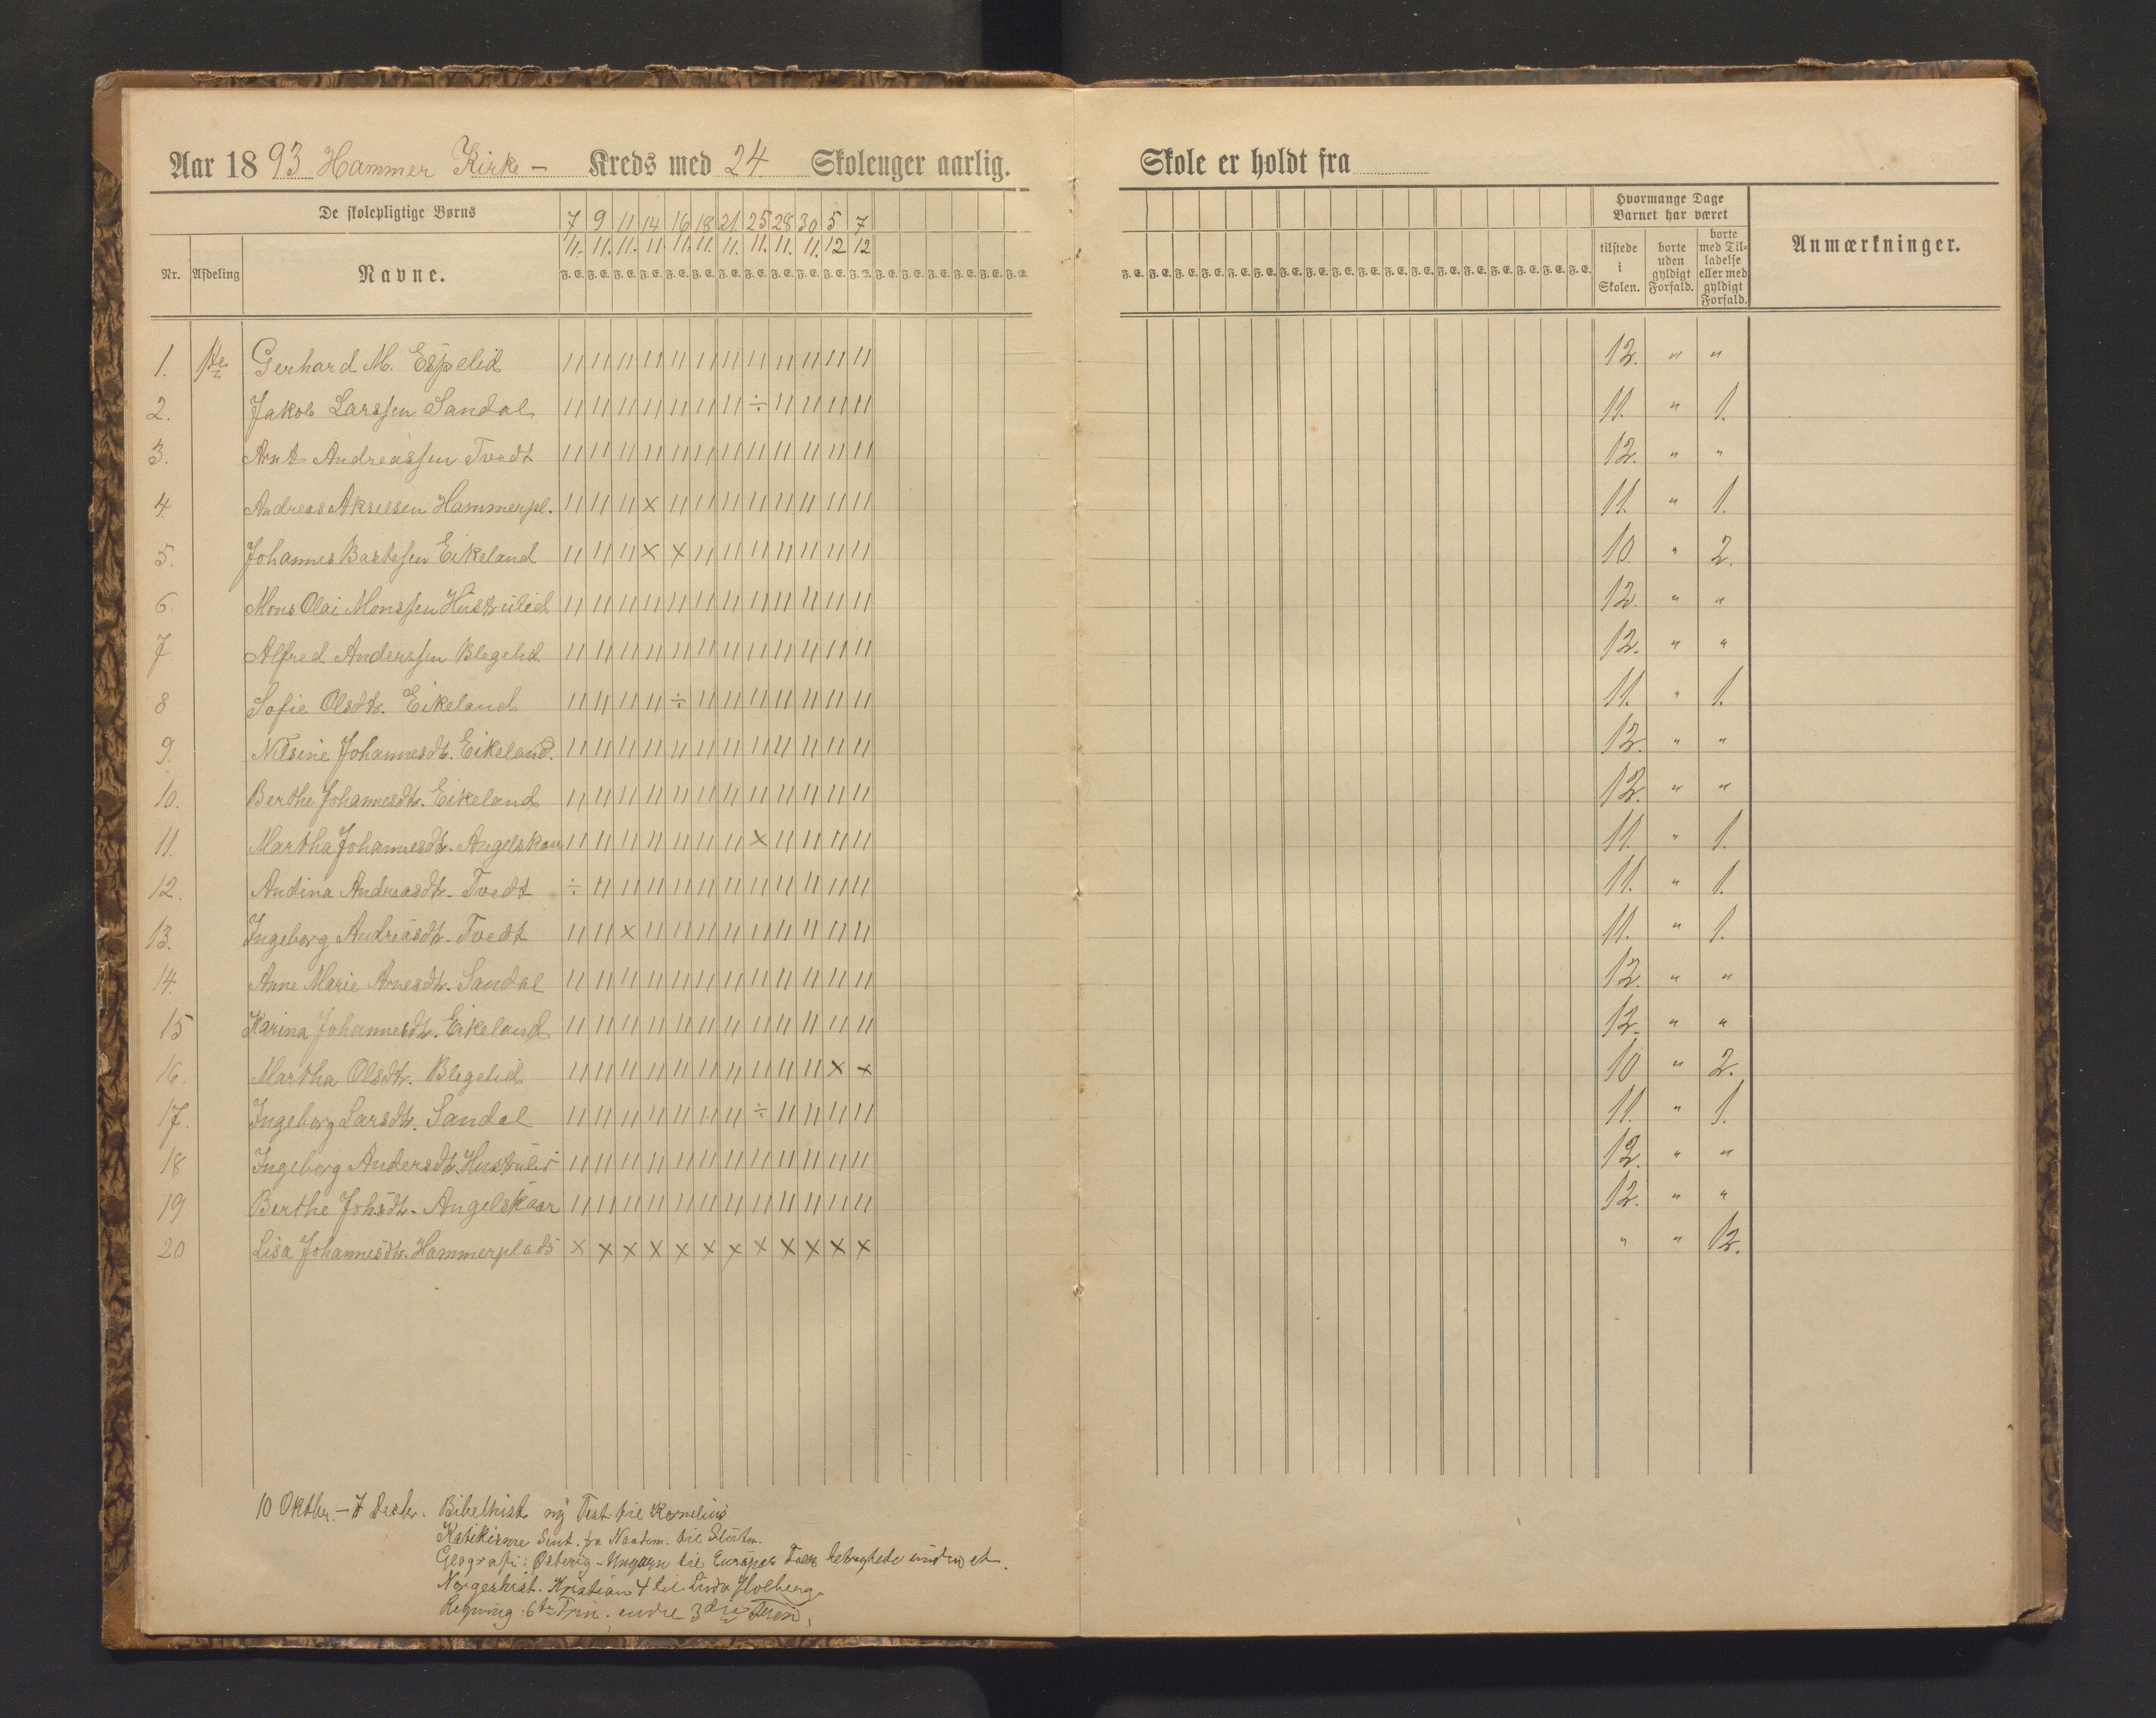 Aar 1893 Hammer Kirke - Kreds med 24 Skolenger aarlig.
Skole er holdt fra
De skolepligtige Børns
7 9 11 14 16 18 21 25 28 30 5 7
11. 11. 11. 11. 11. 11. 11. 11. 11. 11. 12 12
Nr. Afdeling Navne.
F. E. F. E. F. E. F. E. F. E. F. E. F. E. F. E. F. E. F. E. F. E. F. E. F. E. F. E. F. E. F. E. F. E. F. E.
Hvormange Dage Barnet har været
tilstede i Skolen.
borte uden gyldigt Forfald.
borte med Tilladelse eller med gyldigt Forfald.
Anmærkninger.
1. 1ste Gerhard M. Espelid 11 11 11 11 11 11 11 11 11 11 11 11 12. " "
2. Jakob Larssen Sandal 11 11 11 11 11 11 11 ÷ 11 11 11 11 11. " 1.
3. Arnt Andreassen Tvedt 11 11 11 11 11 11 11 11 11 11 11 11 12. " "
4. Andreas Akselsen Hammerpl. 11 11 11 × 11 11 11 11 11 11 11 11 11. " 1.
5. Johannes Bastesen Eikeland 11 11 11 × × 11 11 11 11 11 11 11 10. " 2.
6. Mons Olai Monssen Hustrulid 11 11 11 11 11 11 11 11 11 11 11 11 12. " "
7. Alfred Anderssen Blegelid 11 11 11 11 11 11 11 11 11 11 11 11 12. " "
8 Sofie Olsdtr. Eikeland 11 11 11 11 ÷ 11 11 11 11 11 11 11 11. " 1.
9. Nilsine Johannesdtr. Eikeland. 11 11 11 11 11 11 11 11 11 11 11 11 12. " "
10. Berthe Johannesdtr. Eikeland 11 11 11 11 11 11 11 11 11 11 11 11 12. " "
11. Martha Johannesdtr. Angelskaar 11 11 11 11 11 11 11 × 11 11 11 11 11. " 1.
12. Andina Andreasdtr. Tvedt ÷ 11 11 11 11 11 11 11 11 11 11 11 11. " 1.
13. Ingeborg Andreasdtr. Tvedt 11 11 × 11 11 11 11 11 11 11 11 11 11. " 1.
14. Anne Marie Arnesdtr. Sandal 11 11 11 11 11 11 11 11 11 11 11 11 12. " "
15 Karina Johannesdtr. Eikeland 11 11 11 11 11 11 11 11 11 11 11 11 12. " "
16. Martha Olsdtr. Blegelid 11 11 11 11 11 11 11 11 11 11 × × 10 " 2.
17. Ingeborg Larsdtr. Sandal 11 11 11 11 11 11 11 ÷ 11 11 11 11 11. " 1.
18 Ingeborg Andersdtr. Hustrulid 11 11 11 11 11 11 11 11 11 11 11 11 12. " "
19 Berthe Johsdtr. Angelskaar 11 11 11 11 11 11 11 11 11 11 11 11 12. " "
20 Lisa Johannesdtr. Hammerplads × × × × × × × × × × × × " " 12.
10 Oktbr. - 7 Decbr. Bibelhist. ny Test. til Kornelius
Katekisme
Geografi: Østerig - Ungarn til Europas
Norgeshist. Kristian 4 til Ludv Holberg
Regning: 6te Trin. andre 3die